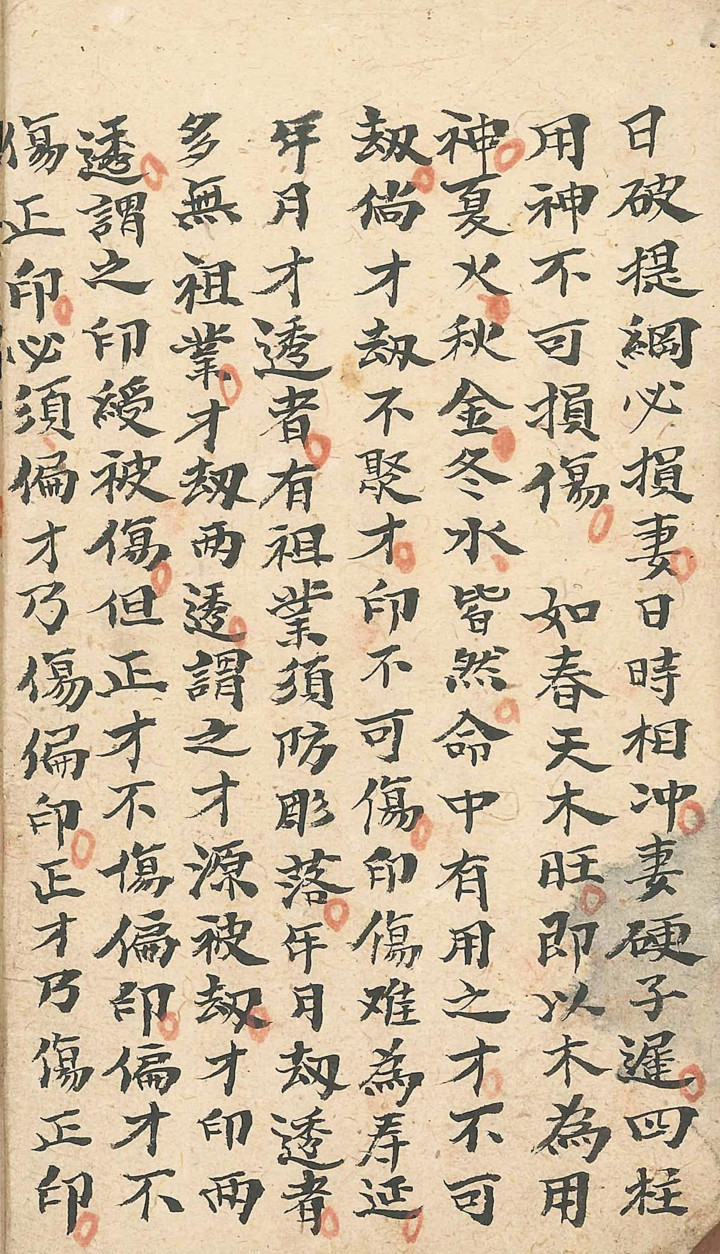 日破提綱必損妻日時相冲妻硬子遲四柱
用神不可損傷　如春天木旺即以木為用
神夏火秋金冬水皆然命中有用之才不可
刼倘才刼不聚才印不可傷印傷难為寿延
年月才透者有祖業須防彫落年月刼透者
多無祖業才刼两透謂之才源被刼才印两
透謂之印綬被傷但正才不傷偏印偏才不
傷正印必須偏才乃傷偏印正才乃傷正印